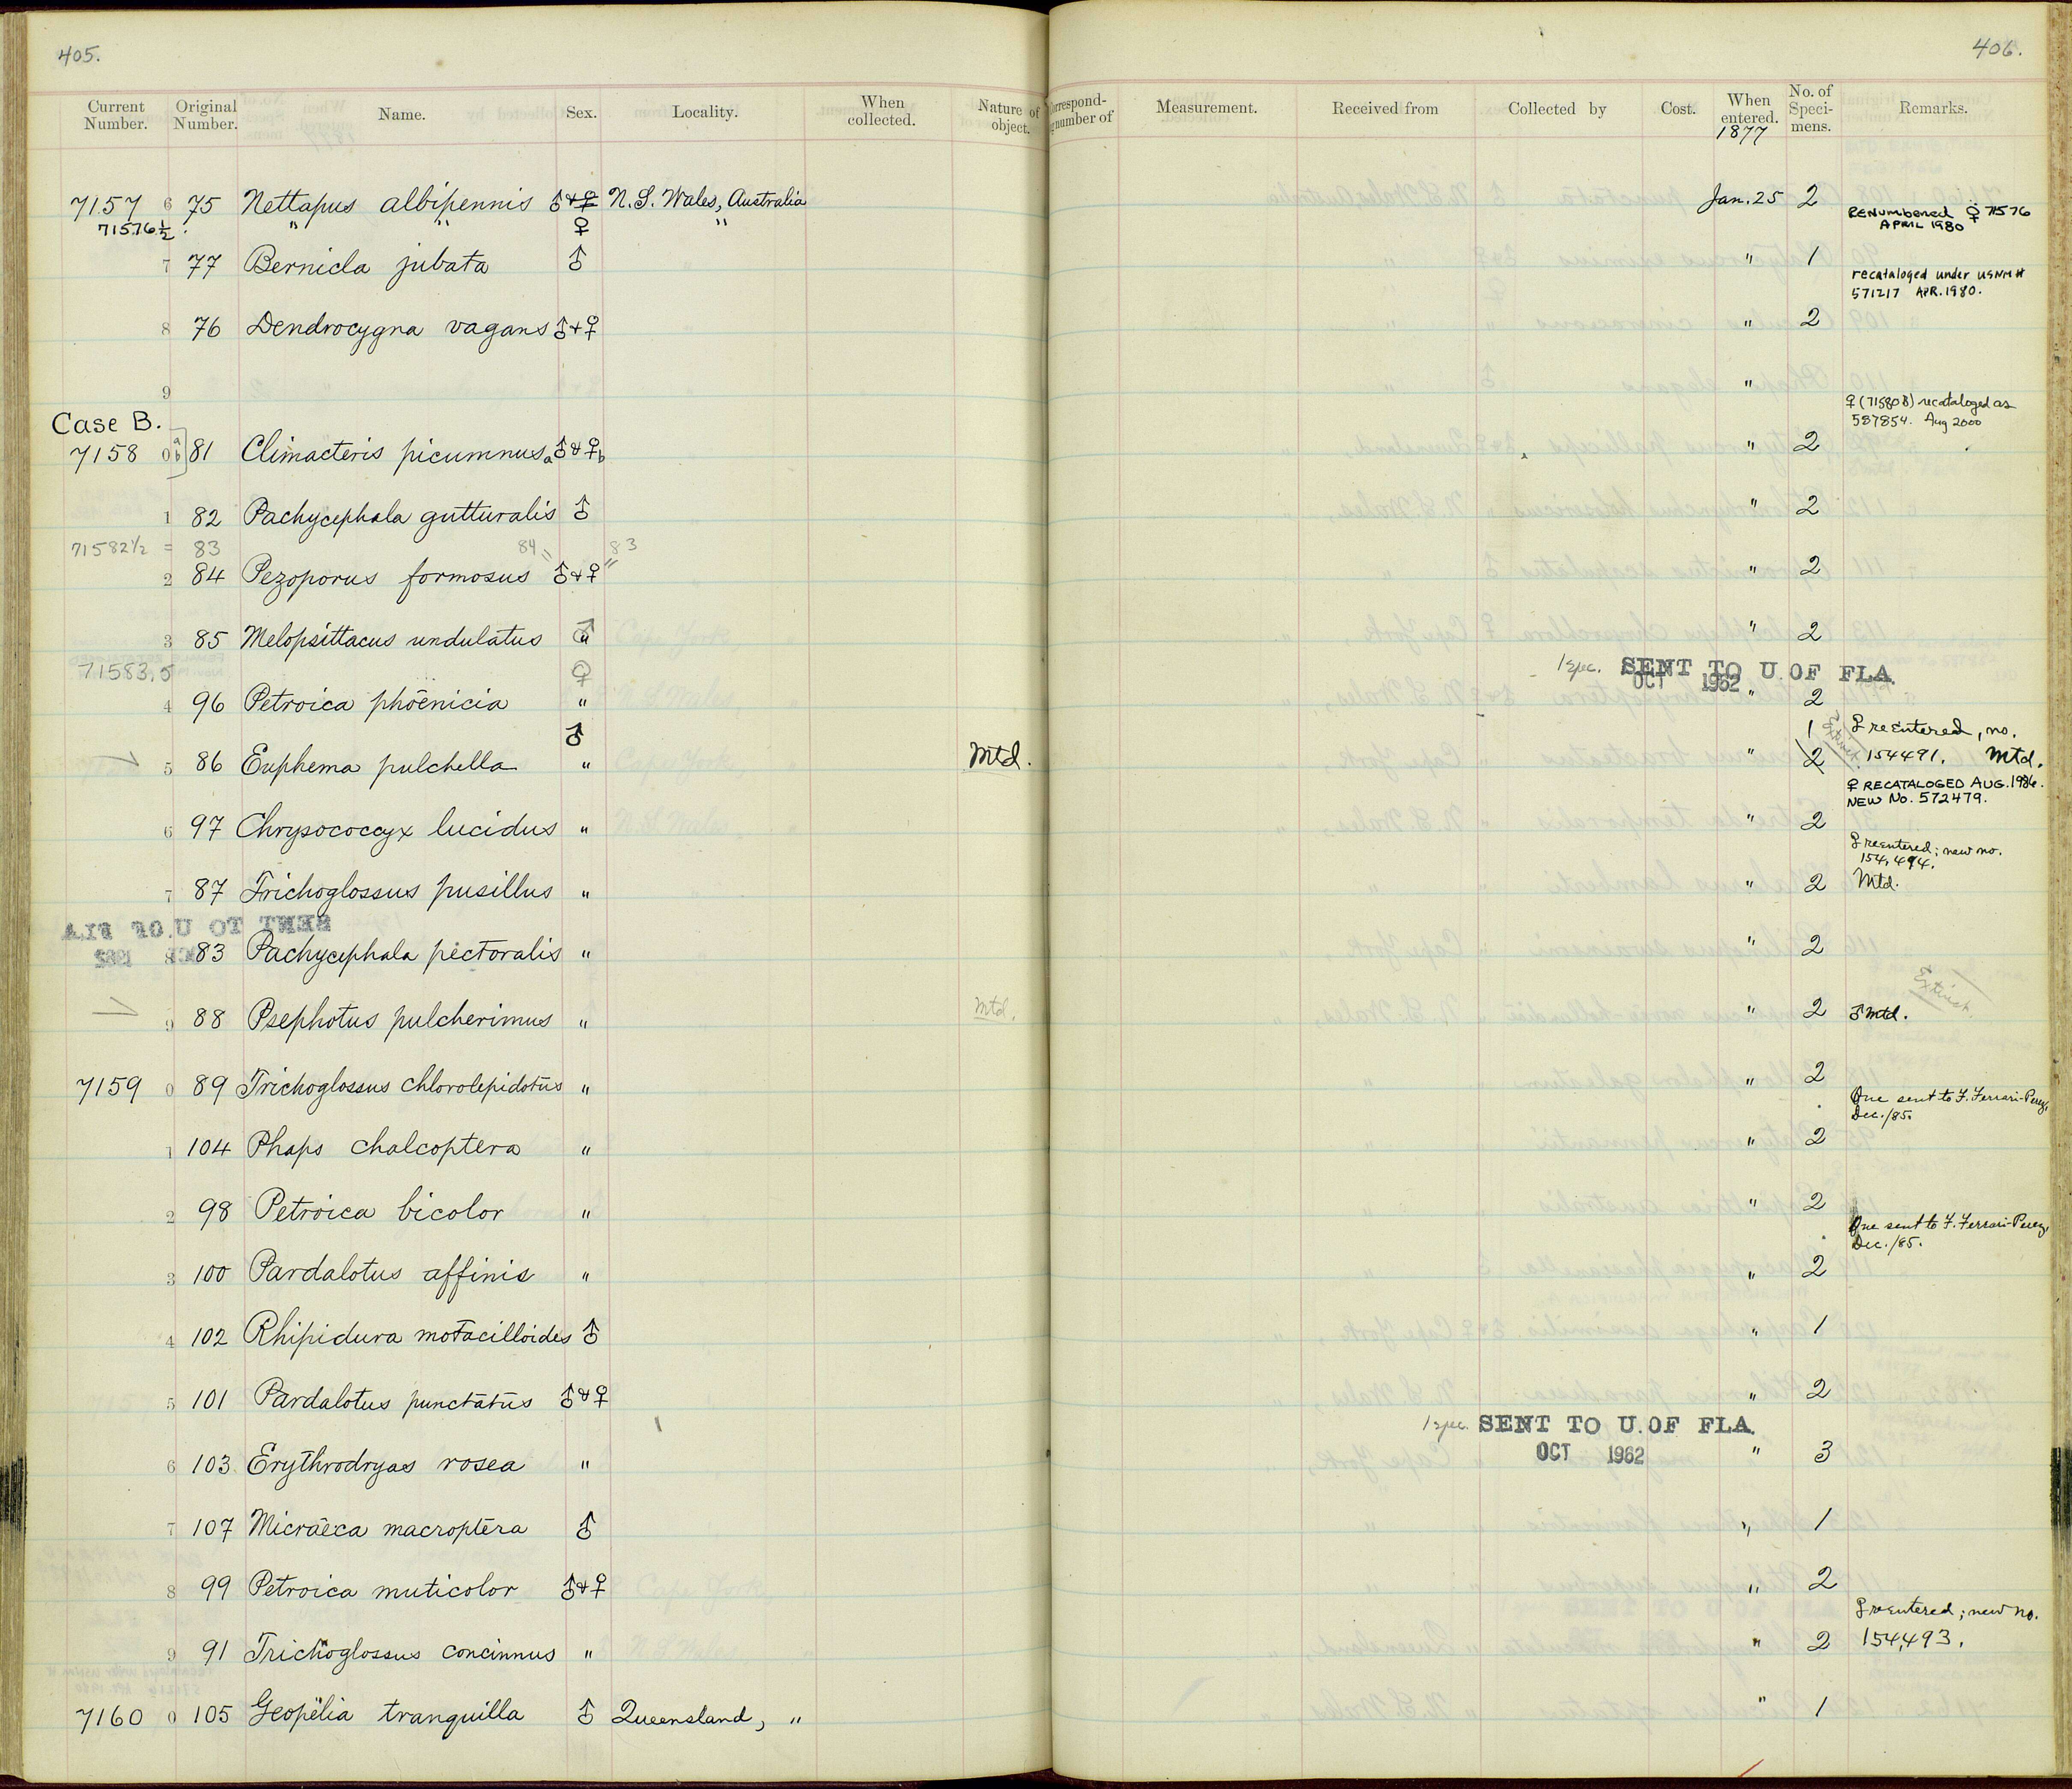 405.
406.
Current Number. Original Number. Name. Sex. Locality. When collected. Nature of object. Correspond- number of Measurement. Received from Collected by Cost. When entered. No. of Speci- mens. Remarks.
1877
7157 6 75 Nettapus albipennis ♂ & ♀ N. S. Wales, Australia Jan. 25 2
71576½ " " ♀ " Renumbered ♀ 71576 April 1980
7 77 Bernicla jubata ♂ " 1
recataloged under USNM # 571217 APR. 1980.
8 76 Dendrocygna vagans ♂ + ♀ " 2
9 "
Case B. ♀ (71580B) recataloged as 587854. Aug 2000
7158 0 a b 81 Climacteris picumnus a ♂ & ♀ b " 2
1 82 Pachycephala gutturalis ♂ " 2
71582½ = 83 84 = 83
2 84 Pezoporus formosus ♂ & ♀ " " 2
3 85 Melopsittacus undulatus ♂ " " 2
71583,5 ♀ 1 spec. SENT TO U. OF FLA.
OCT 1962
4 96 Petroica phoenicia " " 2
♂ 1 Extinct ♀ reentered, no.
5 86 Euphema pulchella " Mtd. " 2 154491. Mtd.
♀ RECATALOGED AUG. 1986. NEW No. 572479.
6 97 Chrysococcyx lucidus " " 2
♀ reentered; new no. 154,494.
7 87 Trichoglossus pusillus " " 2 Mtd.
8 83 Pachycephala pectoralis " " 2
Extinct
9 88 Psephotus pulcherimus " Mtd. " 2 ♂ Mtd.
7159 0 89 Trichoglossus chlorolepidotus " " 2
One sent to F. Ferrari-Perez, Dec./85.
1 104 Phaps chalcoptera " " 2
2 98 Petroica bicolor " " 2
One sent to F. Ferrari-Perez, Dec./85.
3 100 Pardalotus affinis " " 2
4 102 Rhipidura motacilloides ♂ " 1
5 101 Pardalotus punctatus ♂ & ♀ " 2
1 spec. SENT TO U. OF FLA.
OCT 1962
6 103 Erythrodryas rosea " " 3
7 107 Micraeca macroptera ♂ " 1
8 99 Petroica muticolor ♂ & ♀ " 2
♀ reentered; new no.
9 91 Trichoglossus concinnus " " 2 154,493.
7160 0 105 Geopelia tranquilla ♂ Queensland, " " 1